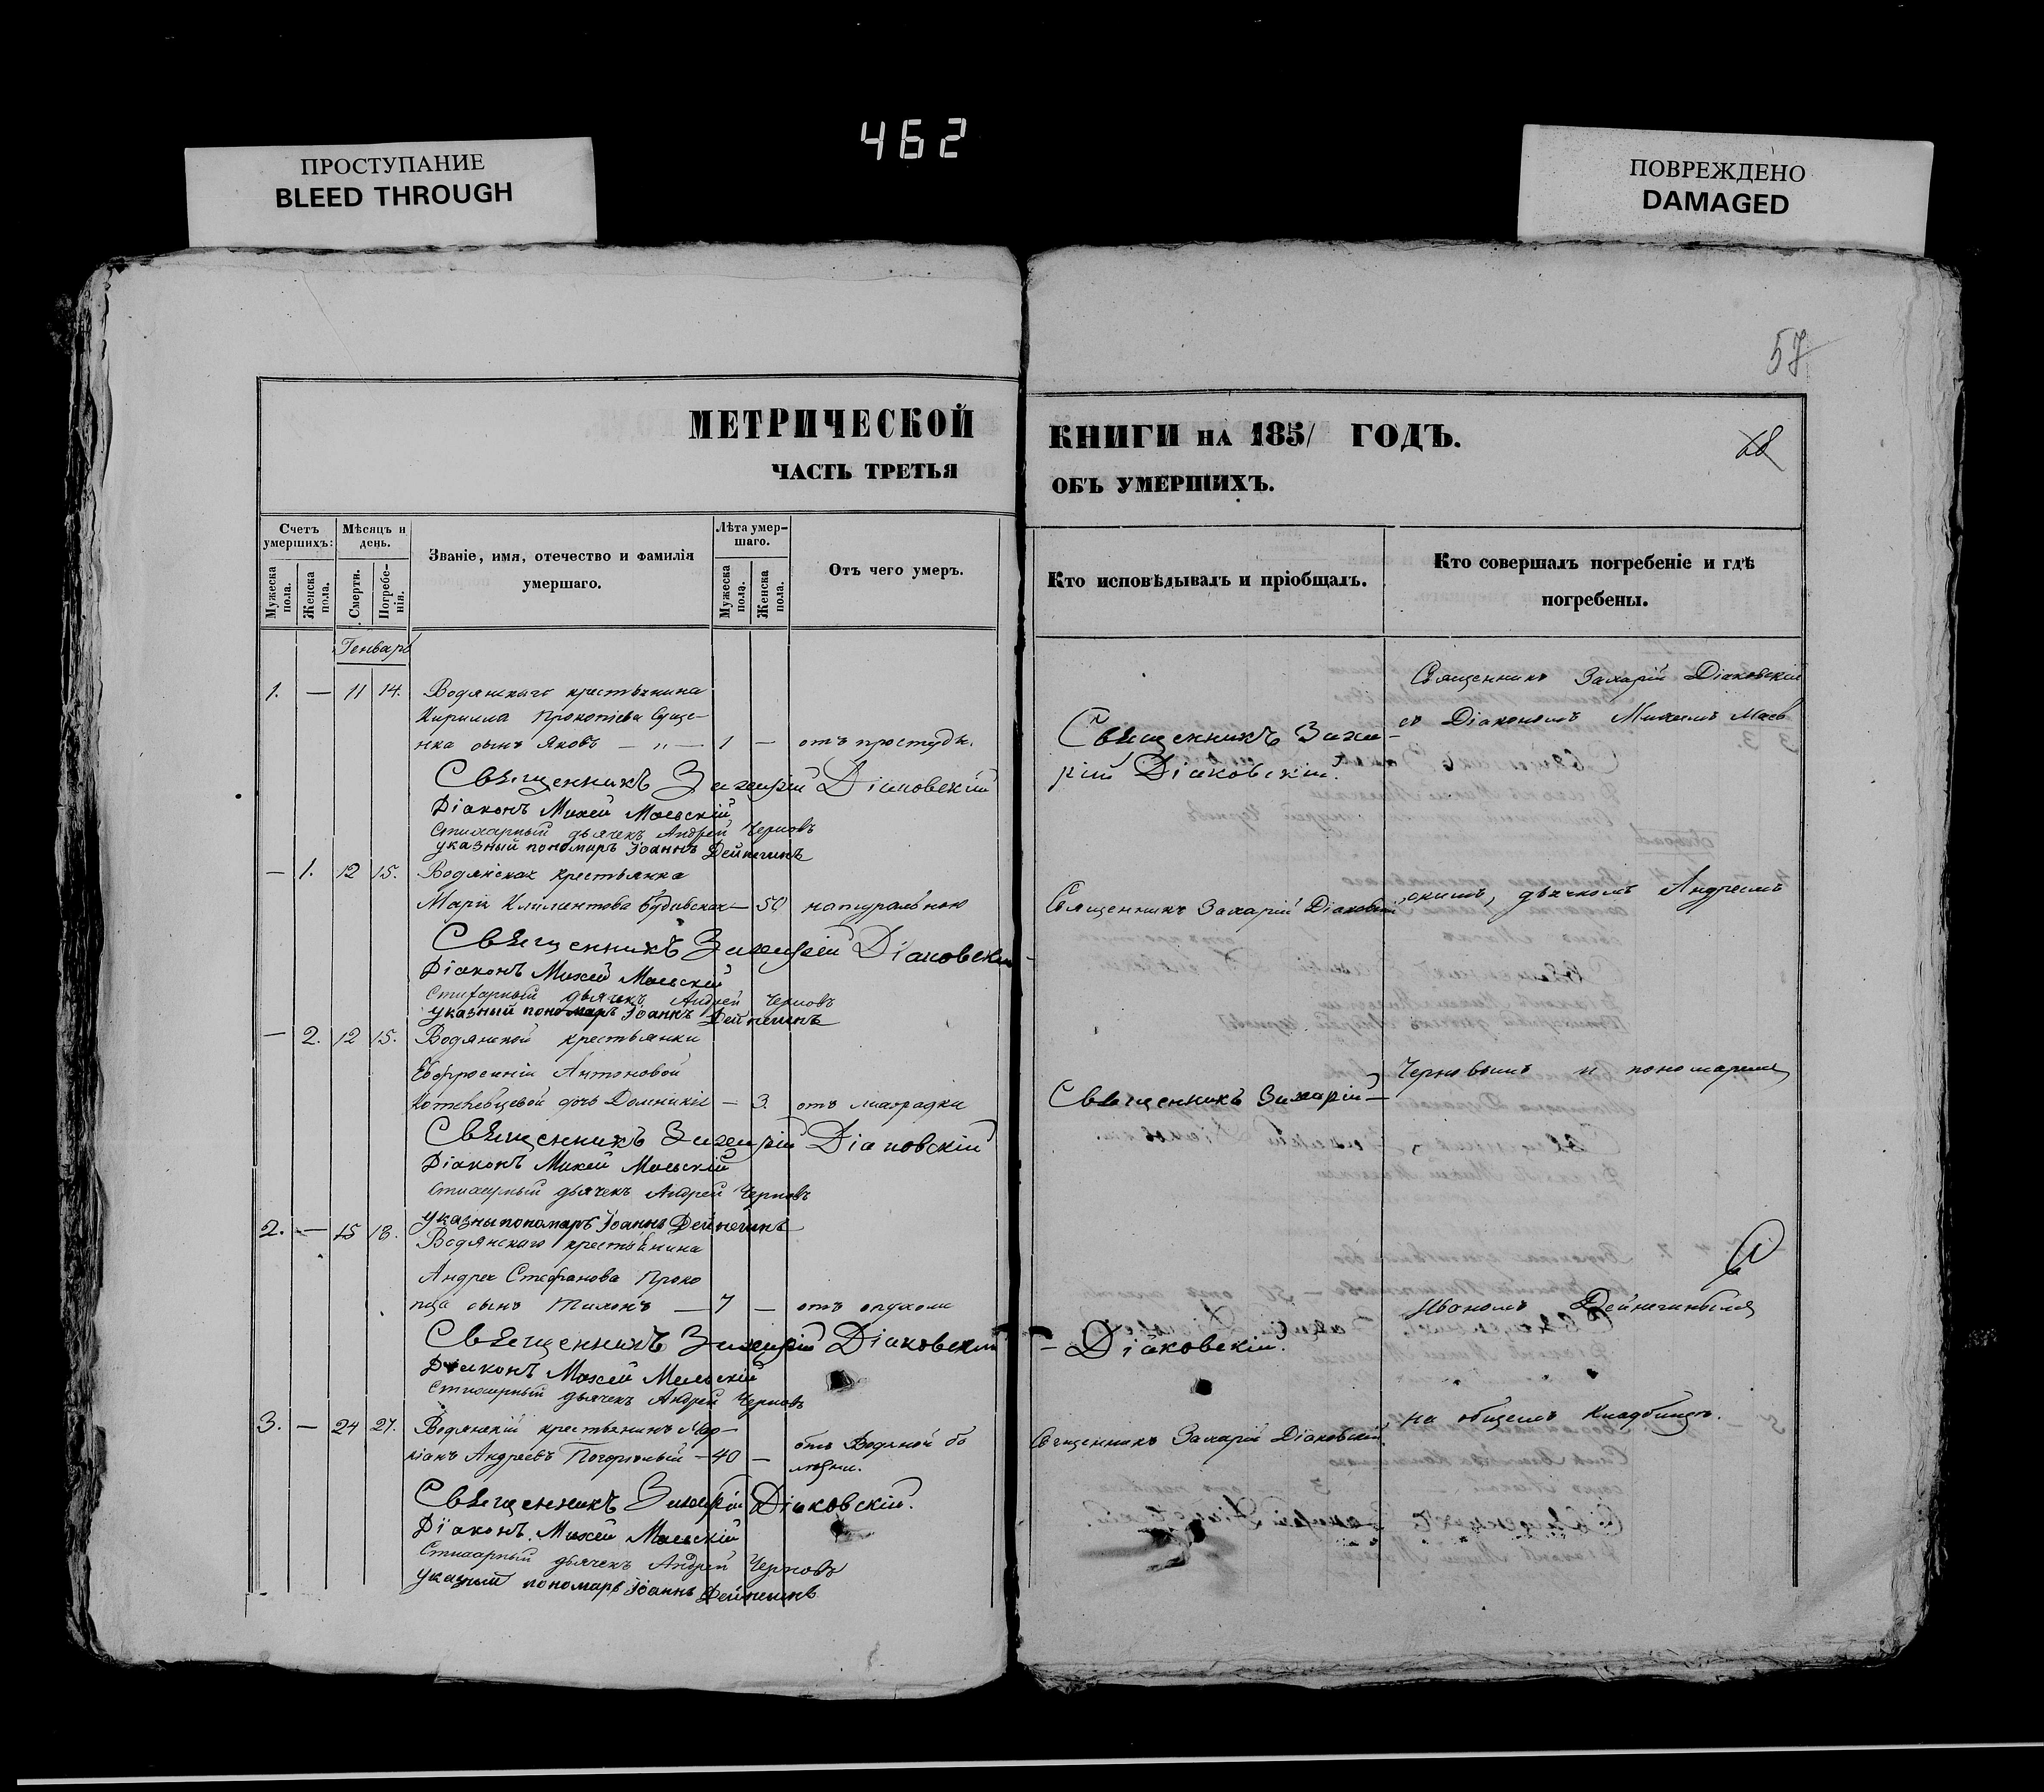 462
ПРОСТУПАНИЕ
BLEED THROUGH
ПОВРЕЖДЕНО
DAMAGED
57
МЕТРИЧЕСКОЙ
ЧАСТЬ ТРЕТЬЯ
Счетъ умершихъ:
Мужеска пола.
Женска пола.
Мѣсяцъ и день.
Смерти.
Погребе-нія.
Званіе, имя, отечество и фамилія
умершаго.
Лѣта умер-шаго.
Мужеска пола.
Женска пола.
Отъ чего умеръ.
Генварь
1. — 11 14. Водянскаго крестьянина
Кирилла Прокопіева Суще-
нка сынъ Яковъ — „ — 1 — отъ простуды.
Священникъ Захарій Діаковскій
Діаконъ Михей Маевскій
Стихарный дьячекъ Андрей Черновъ
указный пономарь Іоаннъ Дейнегинъ
— 1. 12 15. Водянская крестьянка
Марія Климентова — 50 натуральною
Священникъ Захарій Діаковскій
Діаконъ Михей Маевскій
Стихарный дьячекъ Андрей Черновъ
указный пономарь Іоаннъ Дейнегинъ
— 2. 12 15. Водянской крестьянки
Евфросиніи Антоновой
дочь Домникія — 3. отъ лихорадки
Священникъ Захарій Діаковскій
Діаконъ Михей Маевскій
Стихарный дьячекъ Андрей Черновъ
указны пономарь Іоаннъ Дейнегинъ
2. — 15 18. Водянскаго крестьянина
Андрея Стефанова Проко
пца сынъ Тихонъ — 7 — отъ опухоли
Священникъ Захарій Діаковскій
Діаконъ Михей Маевскій
Стихарный дьячекъ Андрей Черновъ
3. — 24 27. Водянскій крестьянинъ Мар-
кіанъ Андреевъ Погорѣлый — 40 — отъ Водяной бо
лѣзни.
Священникъ Захарій Діаковскій.
Діаконъ Михей Маевскій
Стихарный дьячекъ Андрей Черновъ
указный пономарь Іоаннъ Дейнегинъ
КНИГИ НА 1851 ГОДЪ.
ОБЪ УМЕРШИХЪ.
Кто исповѣдывалъ и пріобщалъ.
Кто совершалъ погребеніе и гдѣ
погребены.
Священникъ Заха-
рій Діаковскій.
Священникъ Захарій Діаковскій
Священникъ Захарій —
— Діаковскій.
Священникъ Захарій Діаковскій.
Священникъ Захарій Діаковскій
съ Діакономъ Михеемъ Маев
скимъ, дьячкомъ Андреемъ
Черновымъ и пономаремъ
Иваномъ Дейнегинымъ
на общемъ кладбищѣ.